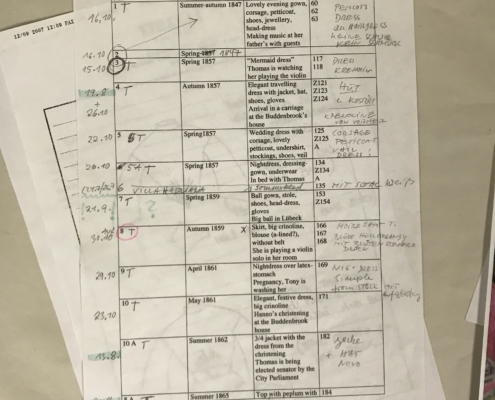 12/09 2007 12:09 FAX
16.10
1 T Summer-autumn 1847 Lovely evening gown, 60
corsage, petticoat, 62
shoes, jewellery, 63
head-dress
Making music at her
father's with guests
PETTICOAT
DRESS
16.10 2 Spring 1857 1847
15.10 3 T Spring 1857 "Mermaid dress" 117
Thomas is watching 118
her playing the violin
19.8 4 T Autumn 1857 Elegant travelling Z121
+ dress with jacket, hat, Z123
26.10 shoes, gloves Z124
Arrival in a carriage
at the Buddenbrook's
house
HUT
22.10 5 T Spring 1857 Wedding dress with 125
corsage, lovely Z125
petticoat, undershirt, A
stockings, shoes, veil
CORSAGE
PETTICOAT
DRESS
20.10 5A T Spring 1857 Nightdress, dressing- 134
gown, underwear Z134
In bed with Thomas A
6 135 MIT
21.9. 7 T Spring 1859 Ball gown, stole, 153
shoes, head-dress, Z154
gloves
Big ball in Lübeck
31.10 8 T Autumn 1859 X Skirt, big crinoline, 166
blouse (a-lined?), 167
without belt 168
She is playing a violin
solo in her room
29.10 9 T April 1861 Nightdress over latex- 169
stomach
Pregnancy, Tony is
washing her
simple
23.10 10 T May 1861 Elegant, festive dress, 171
big crinoline
Hanno's christening
at the Buddenbrook
house
13.8 10 A T Summer 1862 3/4 jacket with the 182
dress from the
christening
Thomas is being
elected senator by the
City Parliament
Jacke
+ Hat
Summer 1865 Top with peplum with 184